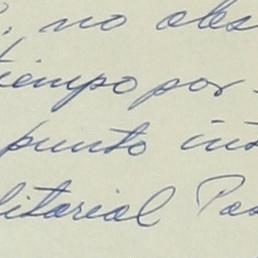 no obs
tiempo por-
punto int
ditorial Pas